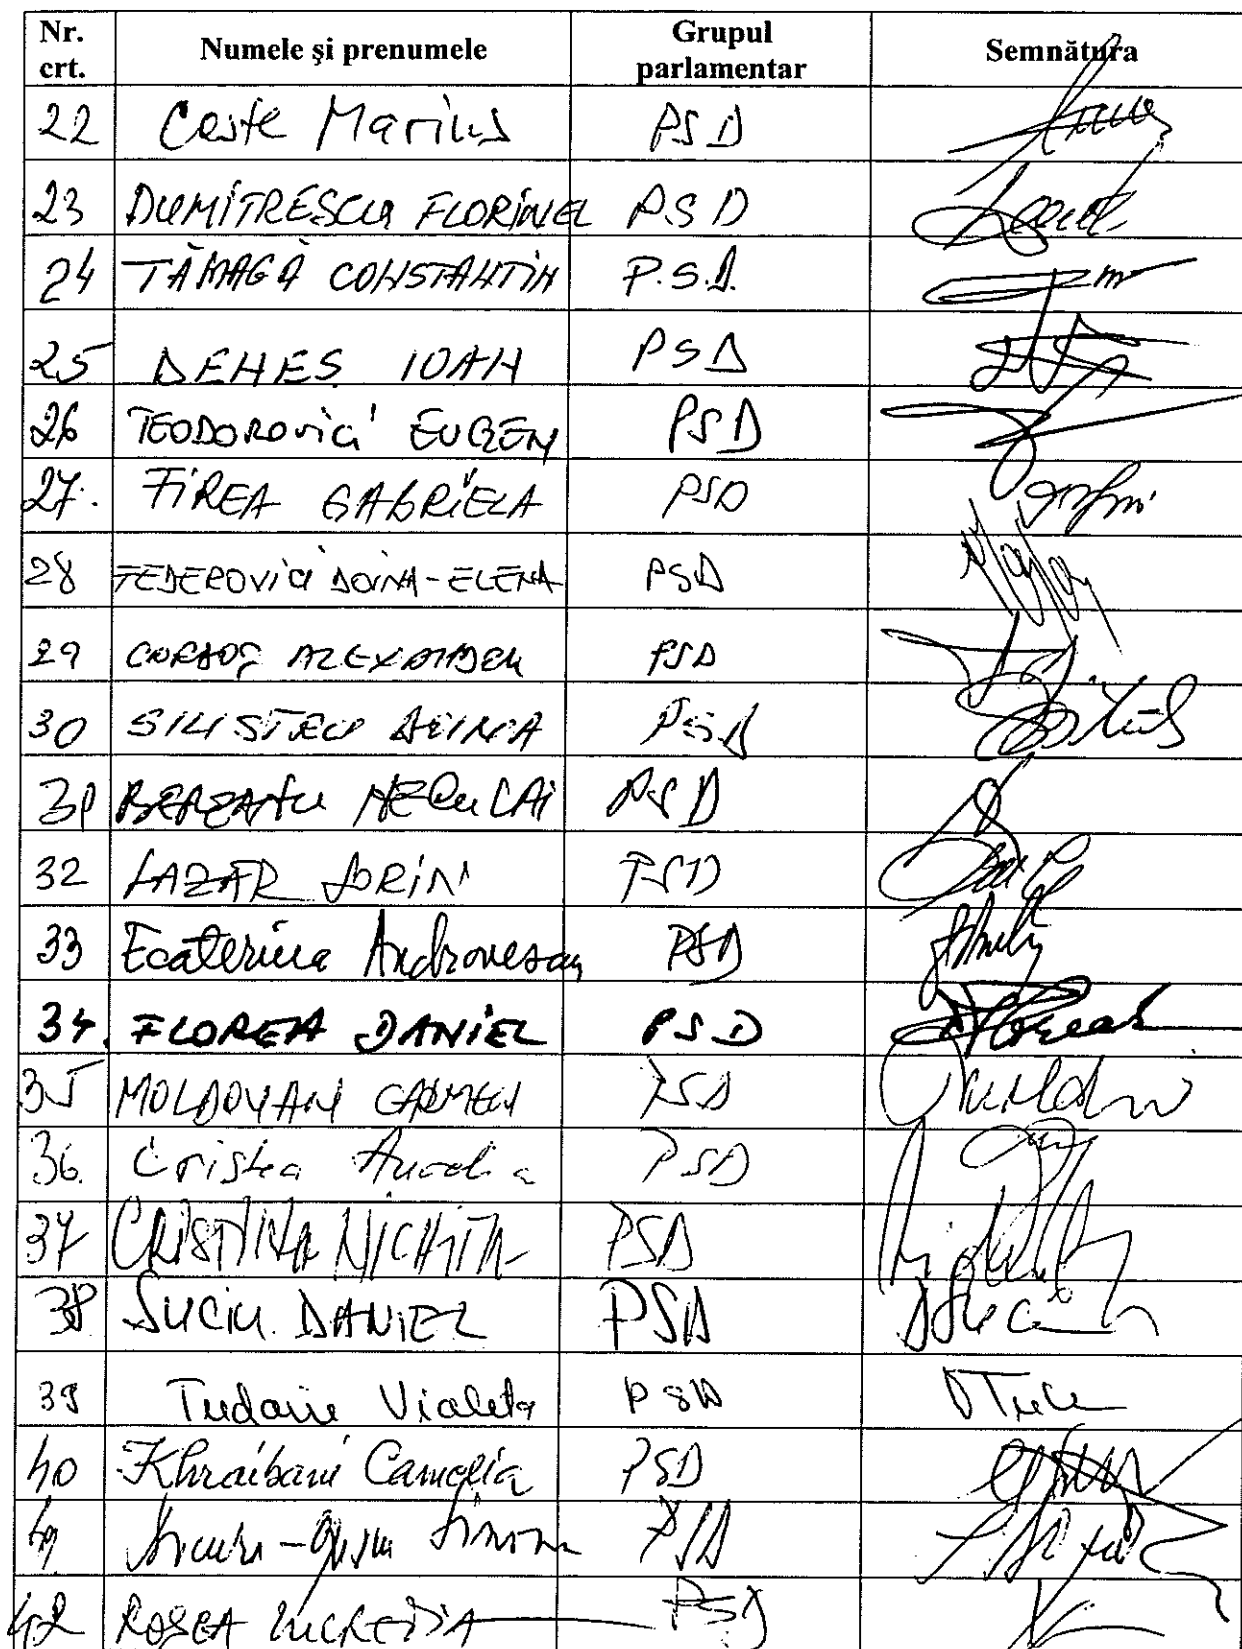 Nr. crt. Numele și prenumele Grupul parlamentar Semnătura
22 Coste Marius PSD
23 DUMITRESCU FLORINEL PSD
24 TĂMAGĂ CONSTANTIN P.S.D.
25 DEHEȘ IOAN PSD
26 TEODOROVICI EUGEN PSD
27. FIREA GABRIELA PSD
28 FEDEROVICI DOINA-ELENA PSD
29 ALEXANDRU PSD
30 SILISTRU DOINA PSD
31 BEREANU NECULAI PSD
32 LAZĂR SORIN PSD
33 Ecaterina Andronescu PSD
34. FLOREA DANIEL PSD
35 MOLDOVAN CARMEN PSD
36. Cristea Aurelia PSD
37 CRISTINA NICHITA PSD
38 SUCIU DANIEL PSD
39 Tudorie Violeta PSD
40 Khraibani Camelia PSD
41 PSD
42 ROȘCA LUCREȚIA PSD